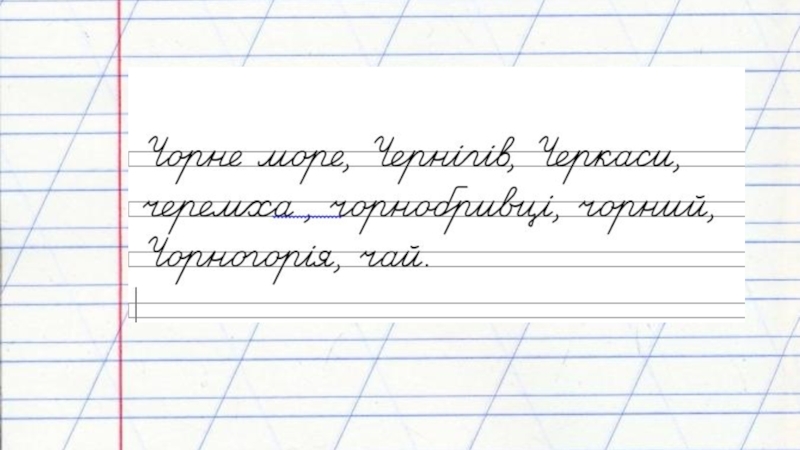 Чорне море, Чернігів, Черкаси,
черемха , чорнобривці, чорний,
Чорногорія, чай.